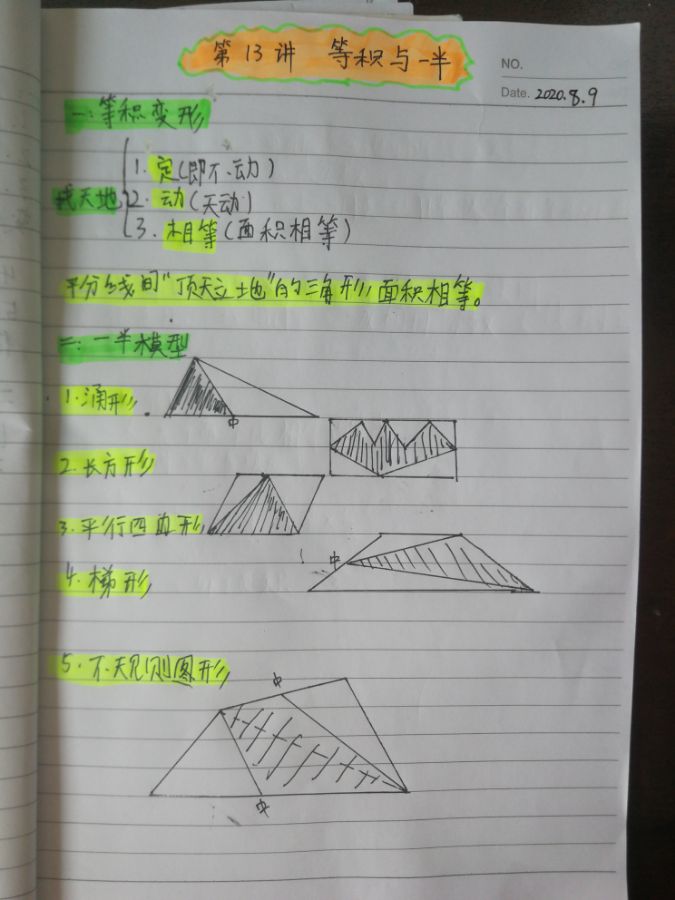 第13讲 等积与一半
NO.
Date. 2020.8.9
一:等积变形
1.定(即不动)
找天地 2.动(天动)
3.相等(面积相等)
平分线间“顶天立地”的三角形面积相等。
二:一半模型
1.涌形
中
2.长方形
3.平行四边形
中
4.梯形
5.不规则图形
中
中